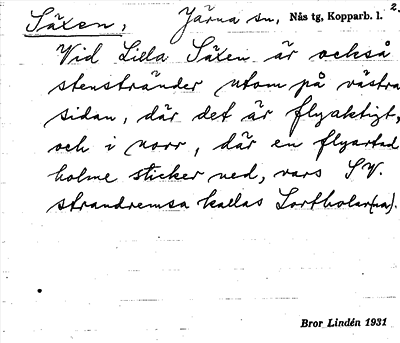 2.
Säxen, Järna sn, Nås tg, Kopparb. l.
Vid Lilla Säxen är också
stenstränder utom på västra
sidan, där det är flyaktigt,
och i norr, där en flyartad
holme sticker ned, vars SV.
strandremsa kallas Lortholar(na).
Bror Lindén 1931